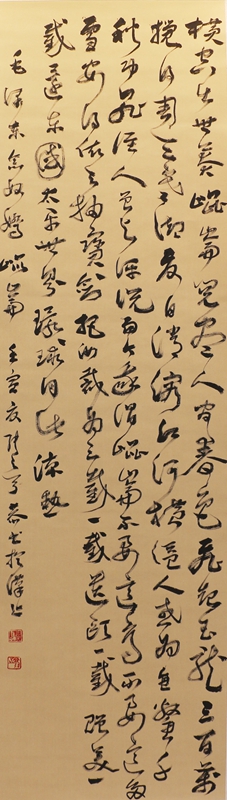 横空出世莽崐崙阅尽人间春色飞起玉龙三百万
搅得周天寒彻夏日消溶江河横溢人或为鱼鳖千
秋功罪谁人曾与评说而今我谓崐崙不要这高不要这多
雪安得倚天抽宝剑把汝裁为三截一截遗欧一截赠美一
截还东國太平世界环球同此凉热
毛泽东念奴娇崐崙 壬寅夏 书于汉上